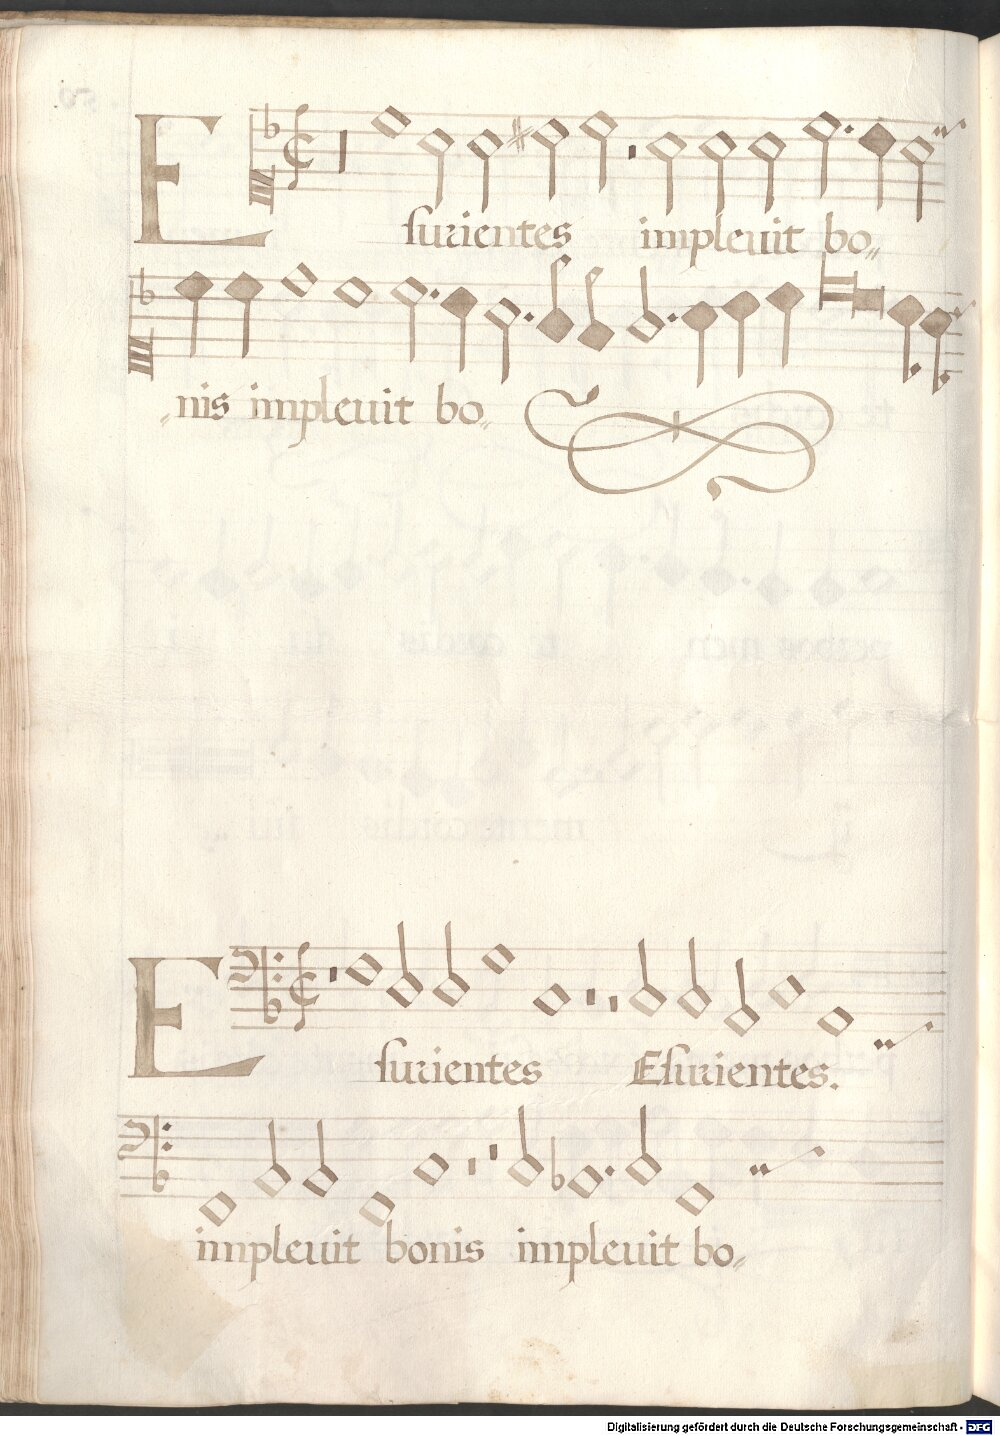 Esurientes impleuit bo„
„nis impleuit bo„
Esurientes Esurientes.
impleuit bonis impleuit bo„
Digitalisierung gefördert durch die Deutsche Forschungsgemeinschaft - DFG